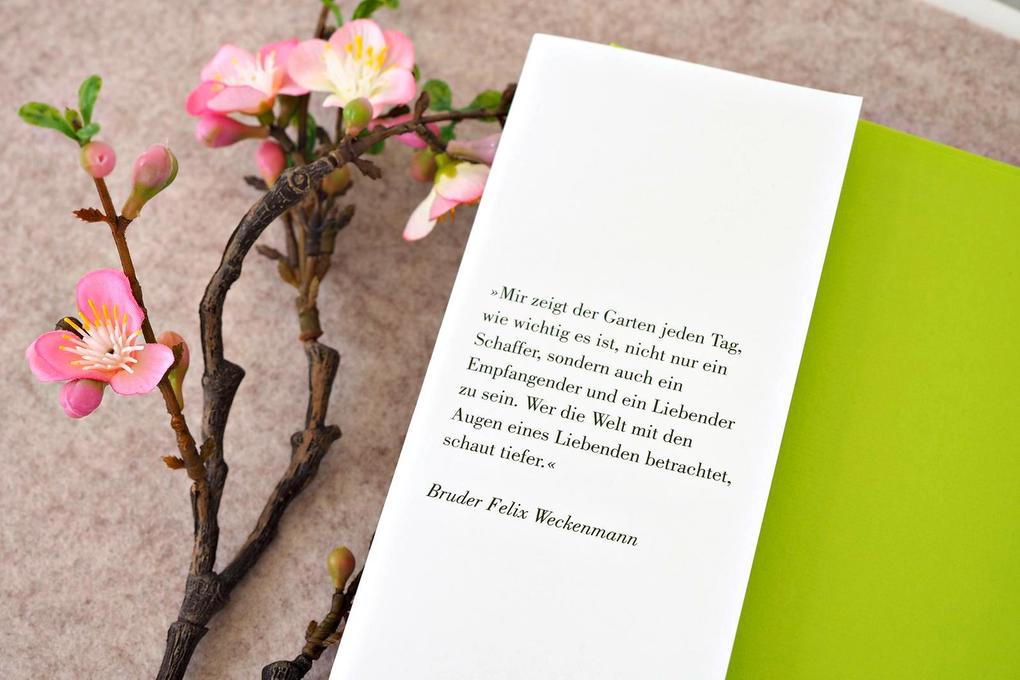 »Mir zeigt der Garten jeden Tag,
wie wichtig es ist, nicht nur ein
Schaffer, sondern auch ein
Empfangender und ein Liebender
zu sein. Wer die Welt mit den
Augen eines Liebenden betrachtet,
schaut tiefer.«
Bruder Felix Weckenmann